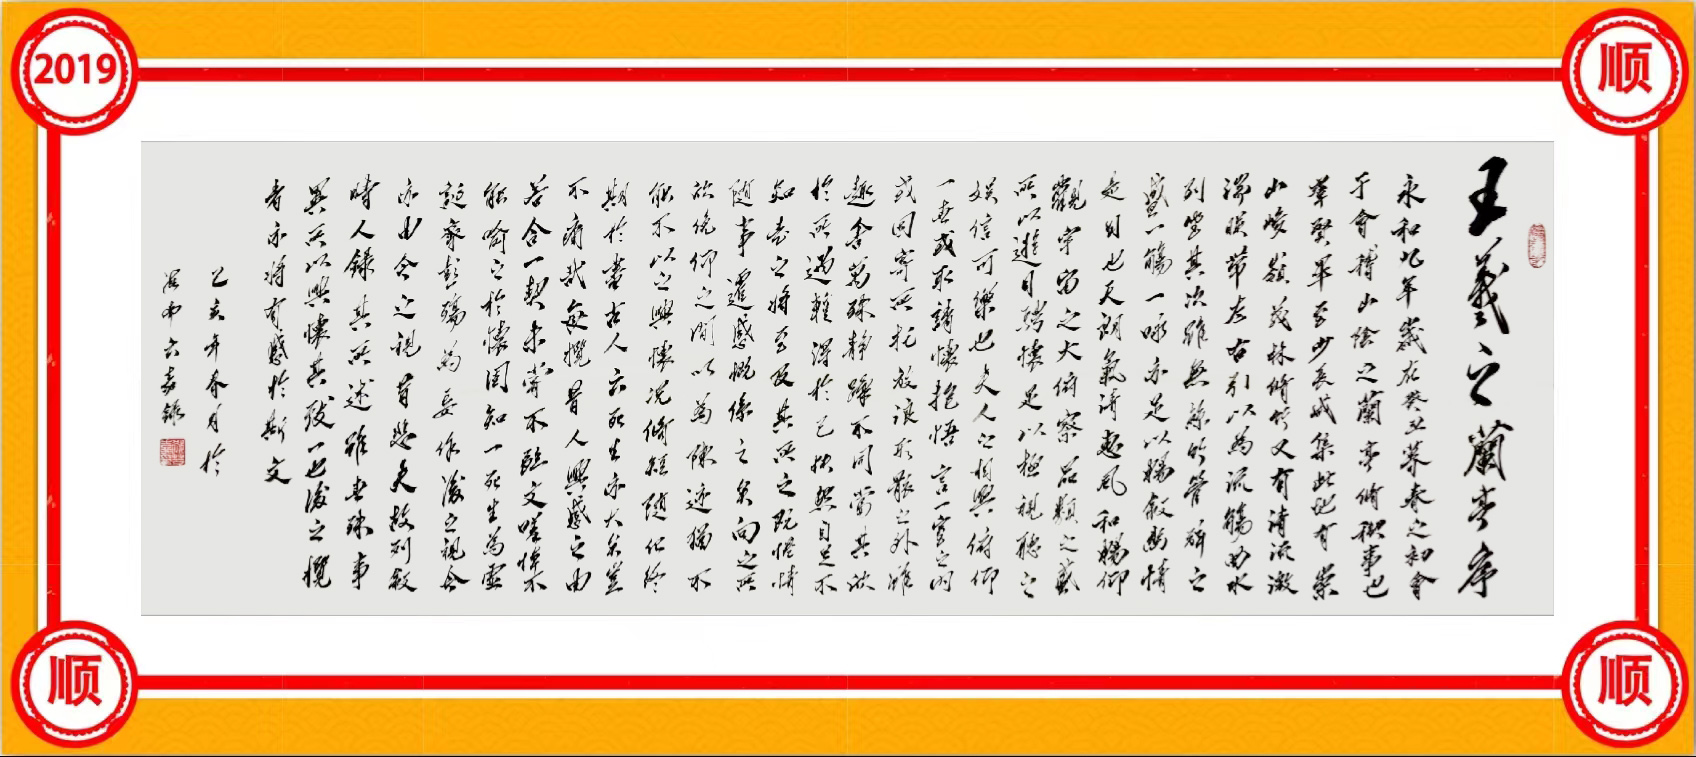 2019
顺
王羲之蘭亭序
永和九年歲在癸丑暮春之初會
于會稽山陰之蘭亭脩禊事也
羣賢畢至少長咸集此地有崇
山峻嶺茂林脩竹又有清流激
湍暎帶左右引以為流觴曲水
列坐其次雖無絲竹管絃之
盛一觴一詠亦足以暢敘幽情
是日也天朗氣清惠風和暢仰
觀宇宙之大俯察品類之盛
所以遊目騁懷足以極視聽之
娛信可樂也夫人之相與俯仰
一世或取諸懷抱悟言一室之內
或因寄所托放浪形骸之外雖
趣舍萬殊靜躁不同當其欣
於所遇輒得於己快然自足不
知老之將至及其所之既惓情
隨事遷感慨係之矣向之所
欣俛仰之間以為陳迹猶不
能不以之興懷況脩短隨化終
期於盡古人云死生亦大矣豈
不痛哉每攬昔人興感之由
若合一契未嘗不臨文嗟悼不
能喻之於懷固知一死生為虛
誕齊彭殤為妄作後之視今
亦由今之視昔悲夫故列敘
時人錄其所述雖世殊事
異所以興懷其致一也後之攬
者亦將有感於斯文
己亥年春月於
顺
顺